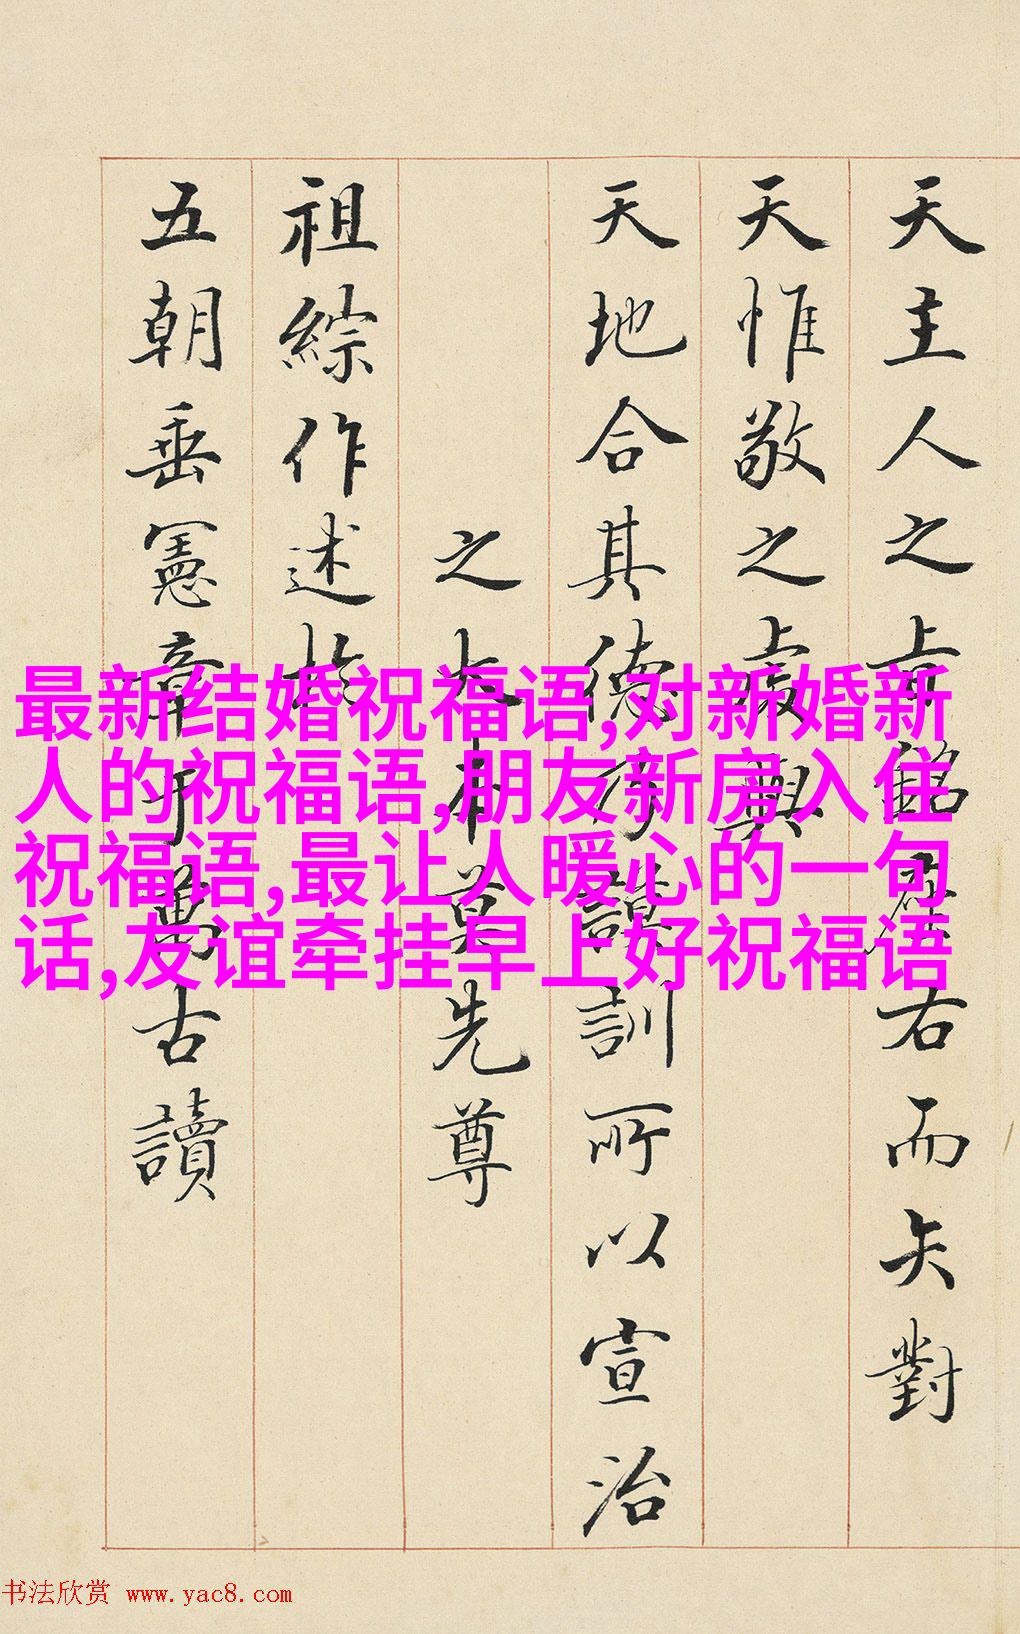 天主人之上銘右而矢對
天惟敬之與
天地合其德謨訓所以宣治
之大本莫先尊
祖綜作述於
五朝垂憲章于萬古讀
最新结婚祝福语,对新婚新
人的祝福语,朋友新房入住
祝福语,最让人暖心的一句
话,友谊牵挂早上好祝福语
书法欣赏 www.yac8.com